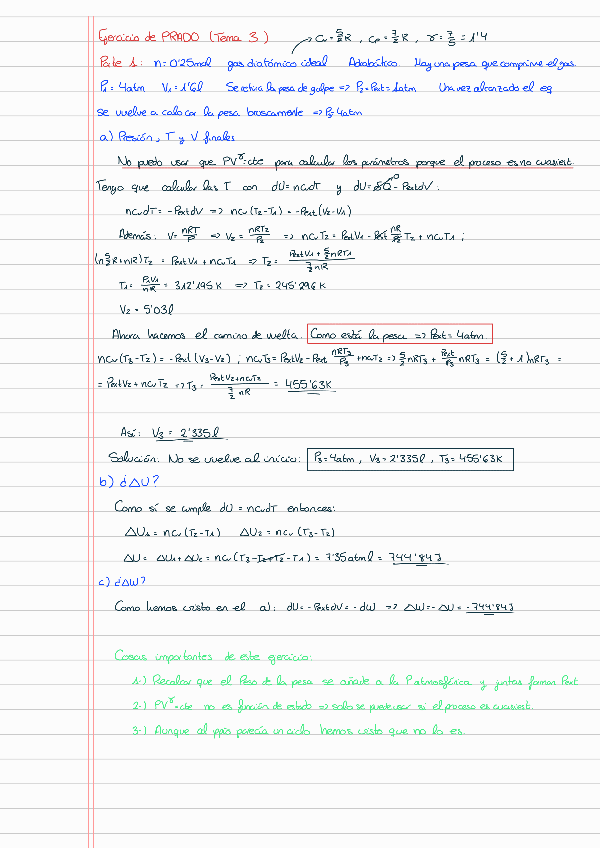 Ejercicio de PRADO (Tema 3) → Cv = 5/2 R, Cp = 7/2 R, γ = 7/5 = 1'4
Parte 1: n = 0'25mol gas diatómico ideal Adiabático. Hay una pesa que comprime el gas.
P₁ = 4atm V₁ = 1'6l Se retira la pesa de golpe => P₂ = Pext = 1atm Una vez alcanzado el eq
se vuelve a colocar la pesa bruscamente => P₃ = 4atm
a) Presión, T y V finales
No puedo usar que PV^γ = cte para calcular los parámetros porque el proceso es no cuasiest.
Tengo que calcular las T con dU = ncvdT y dU = δQ⁰ - PextdV.
ncvdT = -PextdV => ncv(T₂-T₁) = -Pext(V₂-V₁)
Además: V = nRT/P => V₂ = nRT₂/P₂ => ncvT₂ = PextV₁ - Pext nR/P₂ T₂ + ncvT₁ ;
(n 5/2 R + nR)T₂ = PextV₁ + ncvT₁ => T₂ = (PextV₁ + 5/2 nRT₁)/(7/2 nR)
T₁ = P₁V₁/nR = 312'195K => T₂ = 245'296K
V₂ = 5'03l
Ahora hacemos el camino de vuelta. Como está la pesa => Pext = 4atm
ncv(T₃-T₂) = -Pext(V₃-V₂) ; ncvT₃ = PextV₂ - Pext nRT₃/P₃ + ncvT₂ => 5/2 nRT₃ + Pext/P₃ nRT₃ = (5/2 + 1)nRT₃ =
= PextV₂ + ncvT₂ => T₃ = (PextV₂ + ncvT₂)/(7/2 nR) = 455'63K
Así: V₃ = 2'335l
Solución: No se vuelve al inicio: P₃ = 4atm, V₃ = 2'335l, T₃ = 455'63K
b) ¿ΔU?
Como sí se cumple dU = ncvdT entonces:
ΔU₁ = ncv(T₂-T₁) ΔU₂ = ncv(T₃-T₂)
ΔU = ΔU₁ + ΔU₂ = ncv(T₃-T₂+T₂-T₁) = 7'35atml = 744'84J
c) ¿ΔW?
Como hemos visto en el a): dU = -PextdV = -dW => ΔW = -ΔU = -744'84J
Cosas importantes de este ejercicio:
1-) Recalcar que el Peso de la pesa se añade a la P atmosférica y juntas forman Pext
2-) PV^γ = cte no es función de estado => solo se puede usar si el proceso es cuasiest.
3-) Aunque al ppio parecía un ciclo hemos visto que no lo es.